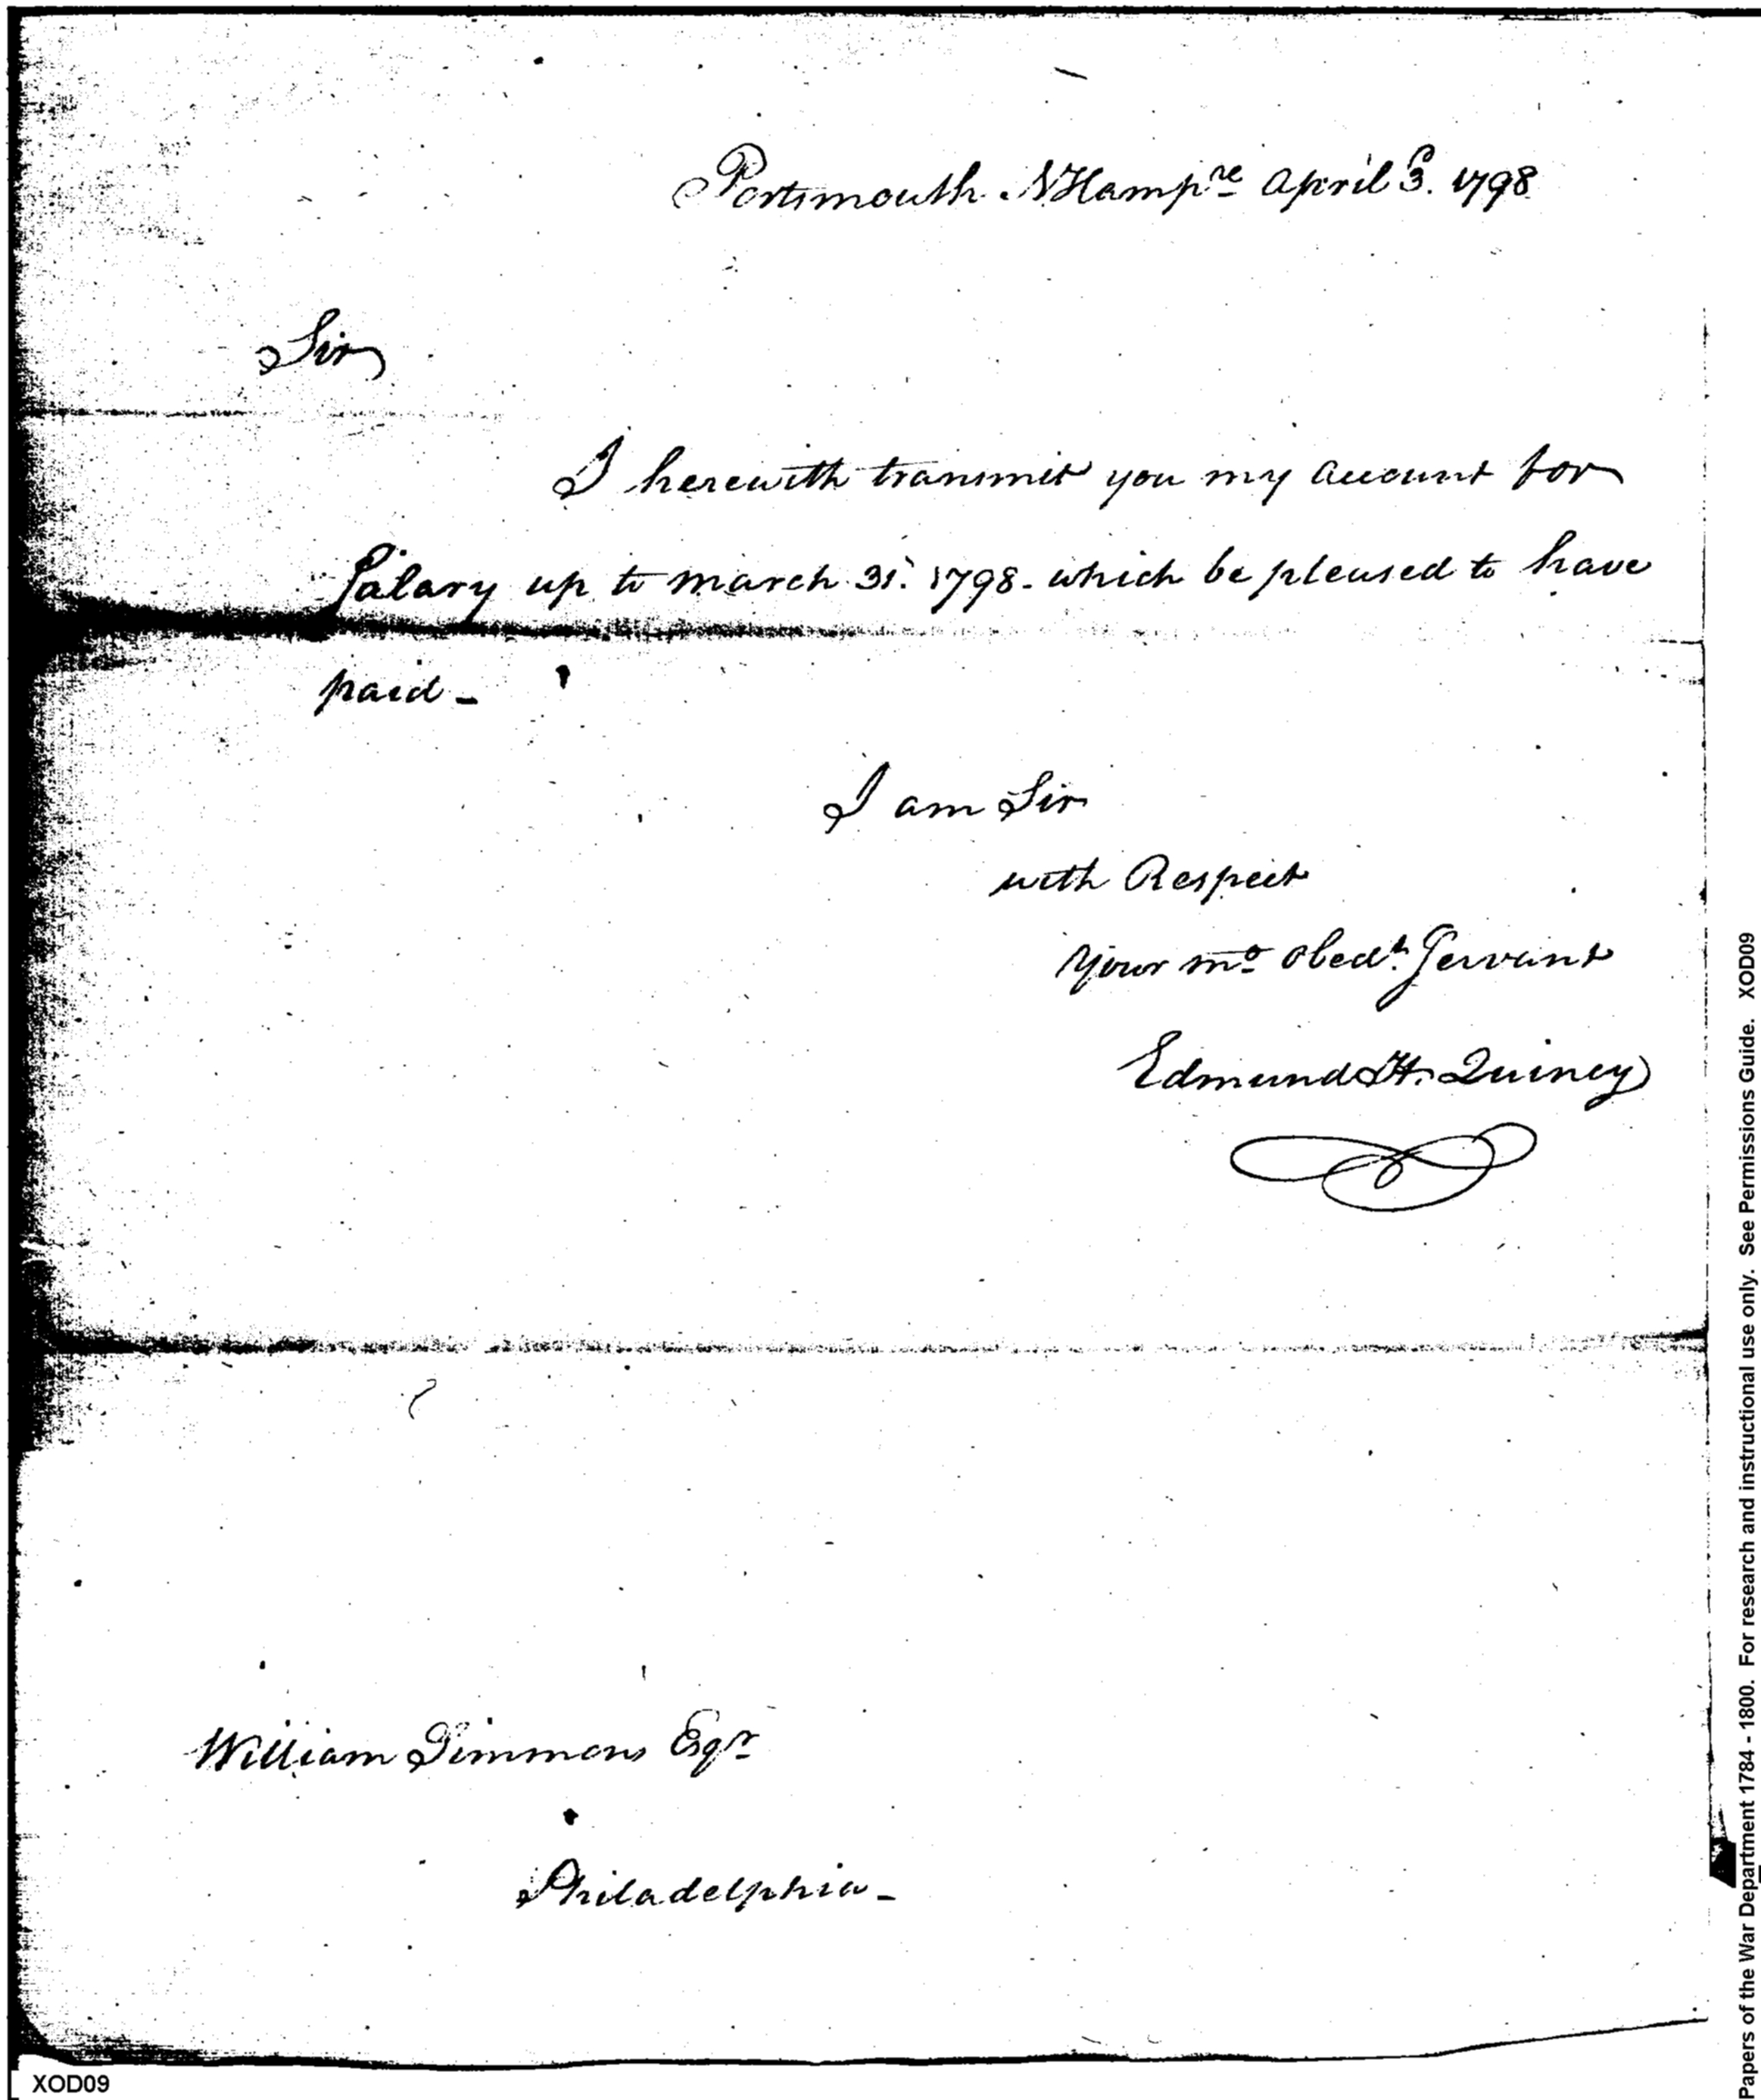 Portsmouth NHampre April 3. 1798
Sir
I herewith transmit you my account for
Salary up to march 31. 1798. which be pleased to have
paid -
I am Sir
with Respect
Your mo obedt. Servant
Edmund H. Quincy
William Simmons Esqr
Philadelphia -
XOD09
Papers of the War Department 1784 - 1800. For research and instructional use only. See Permissions Guide. XOD09